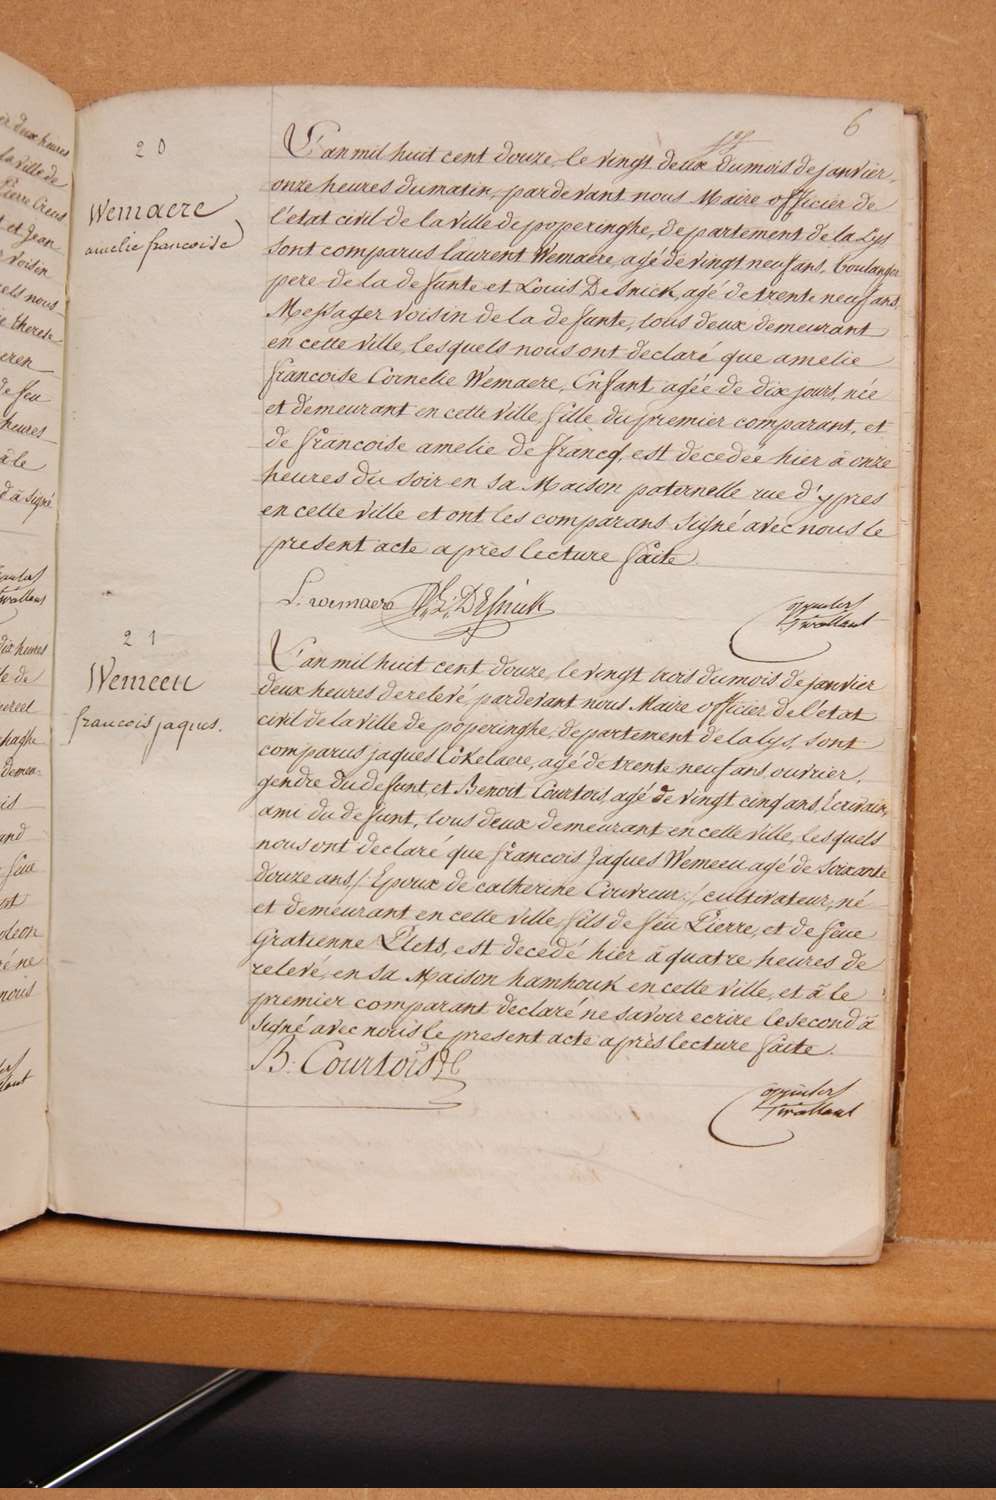 6
20
Wemaere
amelie francoise
L'an mil huit cent douze, le vingt deux du mois de janvier,
onze heures du matin, pardevant nous Maire officier de
l'etat civil de la ville de poperinghe, departement de la Lys
sont comparus laurent Wemaere, agé de vingt neuf ans, boulanger
pere de la defunte et Louis Desnick, agé de trente neuf ans,
Messager voisin de la defunte, tous deux demeurant
en cette ville, lesquels nous ont declaré que amelie
francoise Cornelie Wemaere, Enfant agée de dix jours, née
et demeurant en cette ville, fille du premier comparant, et
de francoise amelie de francq, est decedée hier à onze
heures du soir en sa Maison paternelle rue d'ypres
en cette ville et ont les comparans signé avec nous le
present acte après lecture faite
L. wemaere L. DEsnick
21
Wemeeu
francois jaques.
L'an mil huit cent douze, le vingt trois du mois de janvier
deux heures de relevé, pardevant nous Maire officier de l'etat
civil de la ville de poperinghe, departement de la Lys, sont
comparus jaques Cokelaere, agé de trente neuf ans, ouvrier,
gendre du defunt, et Benoit Courtois, agé de vingt cinq ans, Ecrivain,
ami du defunt, tous deux demeurant en cette ville, lesquels
nous ont declaré que francois Jaques Wemeeu agé de soixante
douze ans /: Epoux de catherine Couvreur :/ cultivateur, né
et demeurant en cette ville, fils de feu Pierre, et de feue
Gratienne Plets, est decedé hier à quatre heures de
relevé, en sa Maison hamhouk en cette ville, et à le
premier comparant declaré ne savoir ecrire le second à
signé avec nous le present acte après lecture faite.
B. Courtois